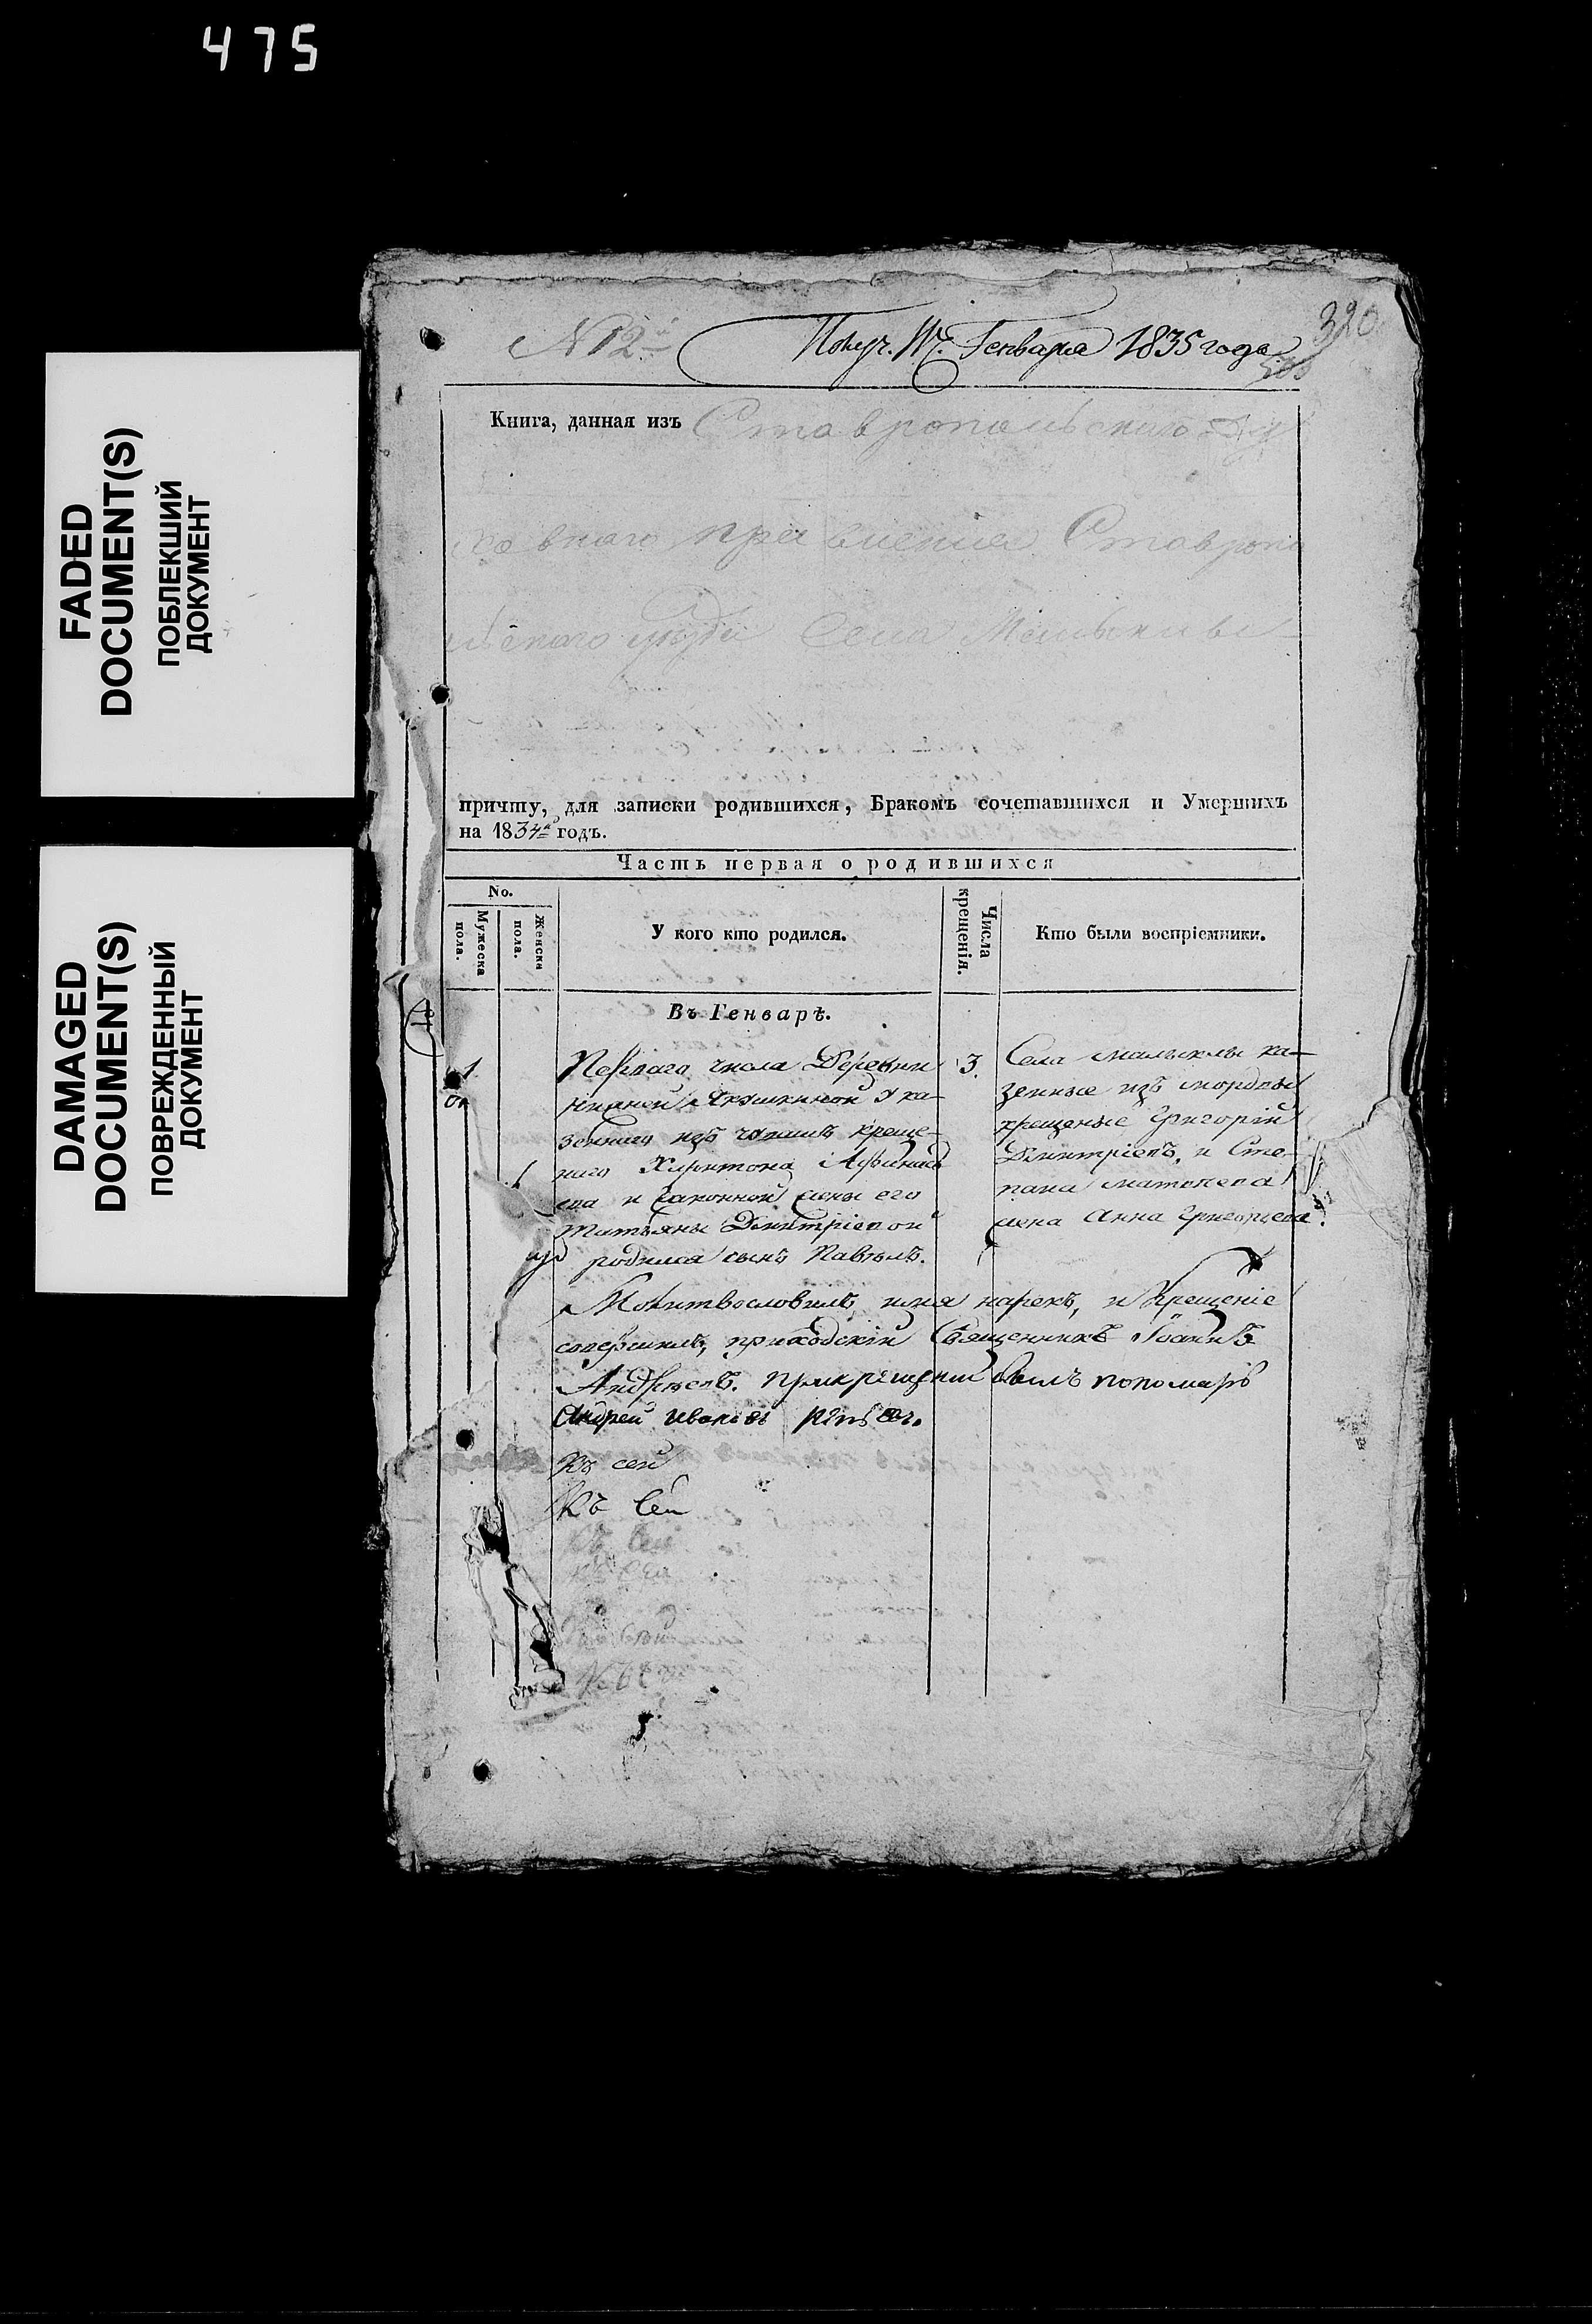 475
FADED
DOCUMENT(S)
ПОБЛЕКШИЙ
ДОКУМЕНТ
DAMAGED
DOCUMENT(S)
ПОВРЕЖДЕННЫЙ
ДОКУМЕНТ
320
№ 12й
Получ. Генваря 1835 года
Книга, данная изъ Ставропольскаго Ду
ховнаго правленія Ставропо
льскаго уезда Села
причту, для записки родившихся, Бракомъ сочетавшихся и Умершихъ
на 1834й годъ.
Часть первая о родившихся
No.
Мужеска пола.
Женски пола.
У кого кто родился.
Числа крещенія.
Кто были воспріемники.
Въ Генварѣ.
1
Перваго числа Деревни
Якушкиной у ка-
зеннаго изъ чувашъ креще-
наго Харитона Афанась
ева и законной жены его
Татьяны Димитріевой
родился сынъ Павелъ.
3.
Села Малыклы ка-
зенные изъ мордвы
крещеные Григорій
Димитріевъ, и Сте-
пана Матвеева
жена Анна Григорьева.
Молитвословилъ, имя нарекъ, и Крещеніе
совершилъ, приходскій Священникъ Іоаннъ
Андреевъ. при крещеніи былъ пономарь
Андрей Ивановъ
Къ сей
Къ Сей
Къ Сей
Къ Сей
Къ Сей
Къ Се